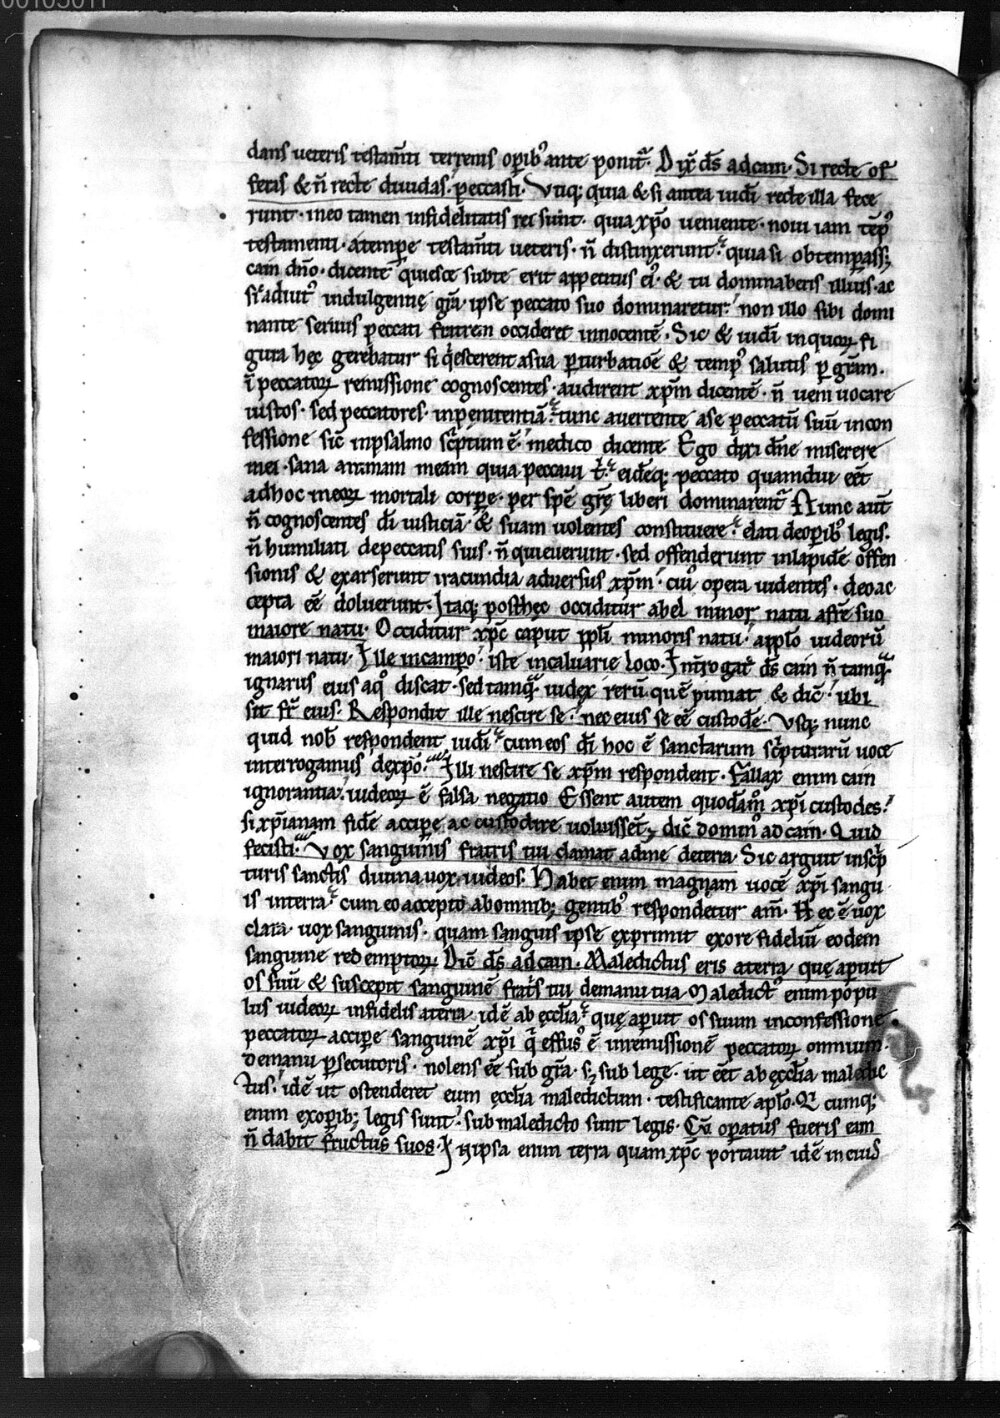 00105011
dans ueteris testam̄ti terrenis op̄ibꝰ ante ponit᷑. Dix̄ d̄s ad cain. Si recte of
feris & n̄ recte diuidas. peccasti. Vtiq; quia & si antea iudi recte illa fece
runt. in eo tamen infidelitatis rei sunt. quia xp̄o ueniente. noui iam tēpꝰ
testamenti. a tempore testam̄ti ueteris. n̄ distinxerunt. quia si obtemperass;
cain dn̄o. dicente quiesce ad te erit appetitus eiꝰ. & tu dominaberis illius. ac
indulgentię gr̄a. ipse peccato suo dominaretur. non illo sibi domi
nante seruus peccati fratrem occideret innocentē. Sic & iudi in quoꝝ fi
gura hęc gerebatur si q̇escerent a sua ꝑturbatiōe & tempꝰ salutis ꝑ gr̄am.
ī peccatoꝝ remissione cognoscentes. audirent xp̄m dicentē. n̄ ueni uocare
iustos. sed peccatores. in penitentiā. tunc auertente a se peccatū suū in con
fessione sic̄ in psalmo sc̄ptum ē. medico dicente. Ego dixi dn̄e miserere
mei. sana animam meam quia peccaui t̄. eidēq; peccato quamdiu eēt
adhoc in eoꝝ mortali corpe. per spē grę liberi dominarent᷑ Nunc aut̄
n̄ cognoscentes di iusticiā. & suam uolentes constituere. elati de op̄ibꝰ legis.
n̄ humiliati de peccatis suis. n̄ quieuerunt. sed offenderunt in lapidē offen
sionis & exarserunt iracundia aduersus xp̄m. cuiꝰ opera uidentes. deo ac
cepta eē doluerunt. Itaq; post hęc occiditur abel minor natu a fr̄e suo
maiore natu. Occiditur xp̄c caput ppl̄i minoris natu. a ppl̄o iudeorū
maiori natu. Ille in campo. iste in caluarie loco. Introgat d̄s cain n̄ tamq̄
ignarus eius a qꝰ discat. sed tamq̄ iudex rerū quē puniat & dic̄. ubi
sit fr̄ eius. Respondit ille nescire se. nec eius se eē custodē. Vsq; nunc
quid nob̄ respondent iudi cum eos di hoc ē sanctarum sc̄pturarū uoce
interrogamus de xp̄o. Illi nescire se xp̄m respondent. Fallax enim cain
ignorantia. iudeoꝝ ē falsa negatio Essent autem quodāmꝰ xp̄i custodes.
si xp̄ianam fidē accipe ac custodire uoluissēt, dic̄ dominꝰ ad cain. Quid
fecisti. Vox sanguinis fratris tui clamat ad me de terra. Sic arguit in sc̄p
turis sanctis diuina uox iudeos. Habet enim magnam uocē xp̄i sangu
is in terra. cum eo accepto ab omnib; gentibꝰ respondetur am̄. Hęc ē uox
clara. uox sanguinis. quam sanguis ipse exprimit ex ore fideliū eodem
sanguine redemptoꝝ. Dic̄ d̄s ad cain. Maledictus eris a terra quę aperuit
os suū & suscepit sanguinē frat̄s tui de manu tua. Maledictꝰ enim popu
lus iudeoꝝ infidelis a terra. idē ab ęccl̄ia. quę aperuit os suum in confessione
peccatoꝝ accipe sanguinē xp̄i q̇ effusꝰ ē in remissionē peccatoꝝ omnium.
de manu ꝑsecutoris. nolens eē sub gr̄a. s; sub lege. ut eēt ab ęccl̄ia maledic
tus. idē ut ostenderet eum ęccl̄ia maledictum. testificante apl̄o. Q cumq;
enim ex opib; legis sunt. sub maledicto sunt legis. Cū operatus fueris eam
n̄ dabit fructus suos. In ipsa enim terra quam xp̄c portauit idē in eius